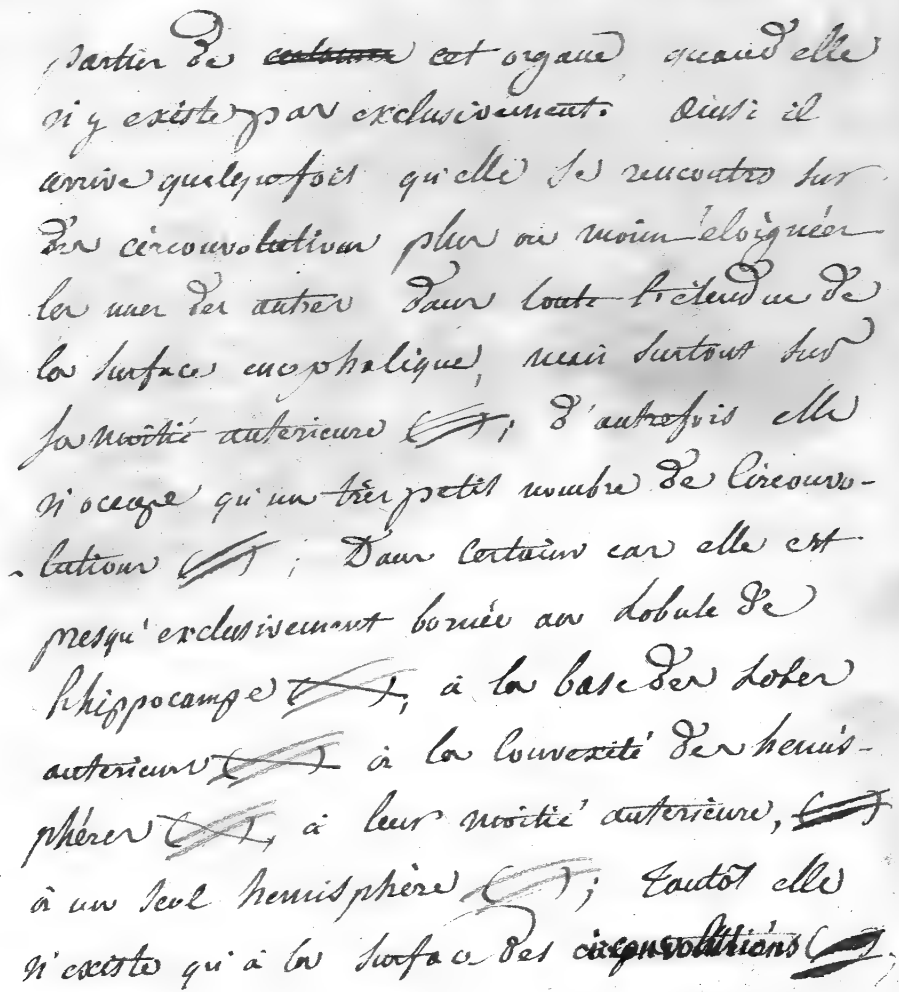 parties de cet organe, quand elle
n'y existe pas exclusivement. Ainsi il
arrive quelquefois qu'elle se rencontre sur
des circonvolutions plus ou moins éloignées
les unes des autres dans toute l'étendue de
la surface encephalique, mais surtout sur
sa moitié anterieure ( ); d'autrefois elle
n'occupe qu'un très petit nombre de Circonvo-
-lutions ( ); Dans certains cas elle est
presqu'exclusivement bornée au Lobule de
l'hippocampe ( ), à la base des Lobes
anterieurs ( ) à la Convexité des hemis-
phéres ( ), à leur moitié anterieure, ( )
à un seul hemisphère ( ); tantôt elle
n'existe qu'à la surface des circonvolutions ( );